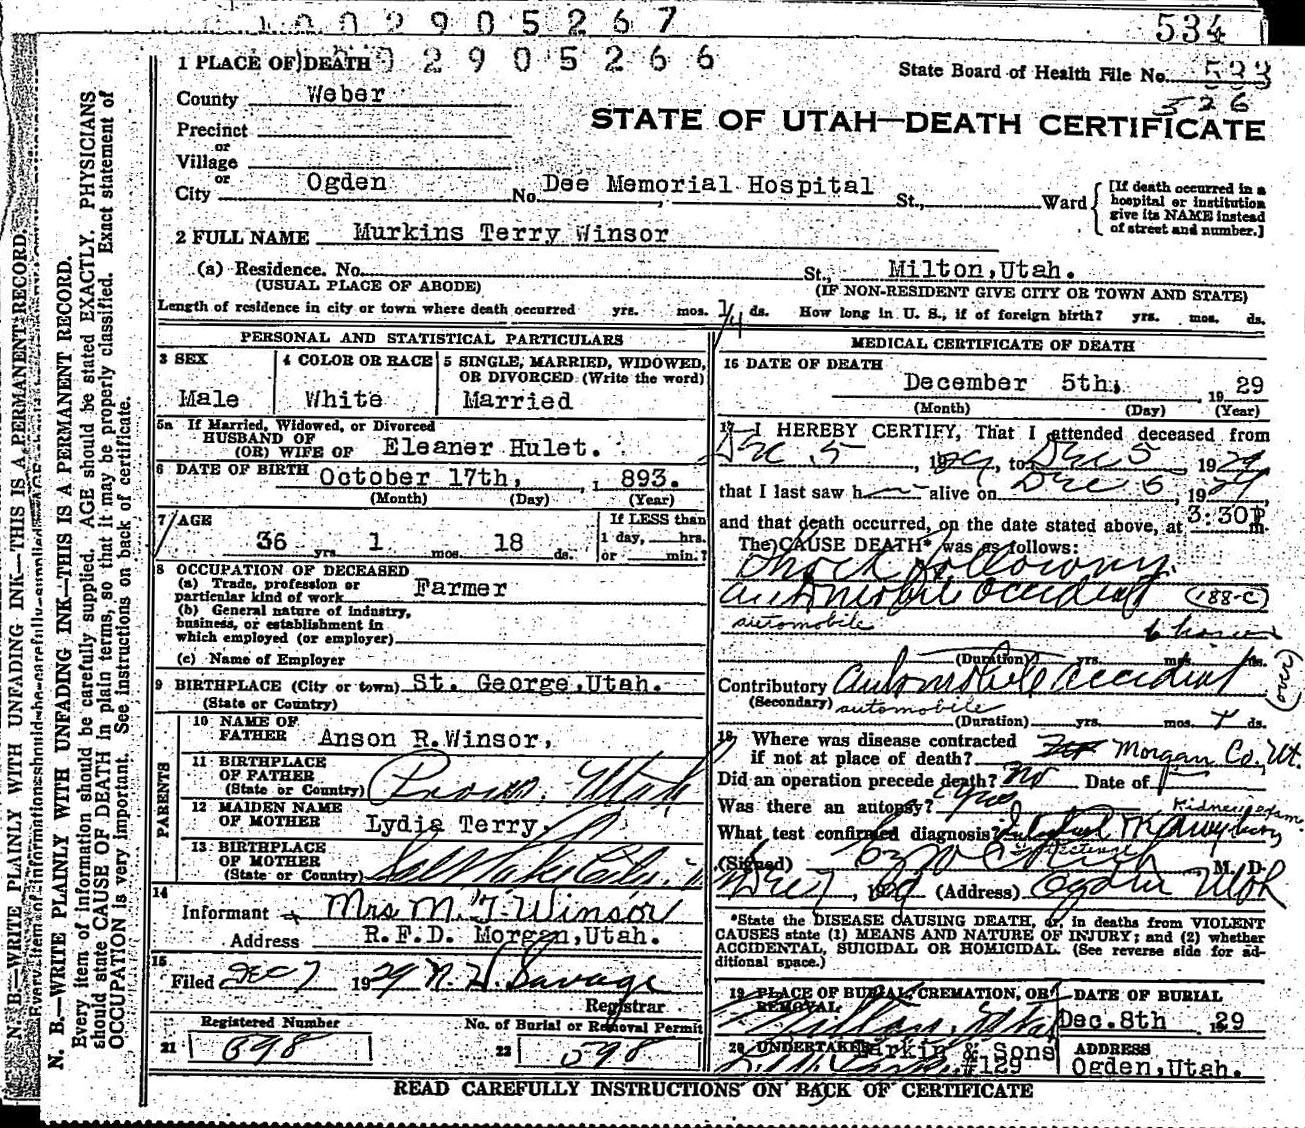 1002905267
534
1 PLACE OF DEATH
02905266
State Board of Health File No. 533
526
County Weber
STATE OF UTAH—DEATH CERTIFICATE
Precinct
or
Village
or
City Ogden No. Dee Memorial Hospital St., Ward
[If death occurred in a hospital or institution give its NAME instead of street and number.]
2 FULL NAME Murkins Terry Winsor
(a) Residence. No. St., Milton,Utah.
(USUAL PLACE OF ABODE) (IF NON-RESIDENT GIVE CITY OR TOWN AND STATE)
Length of residence in city or town where death occurred yrs. mos. 1/4 ds. How long in U. S., if of foreign birth? yrs. mos. ds.
PERSONAL AND STATISTICAL PARTICULARS
3 SEX
Male
4 COLOR OR RACE
White
5 SINGLE, MARRIED, WIDOWED, OR DIVORCED (Write the word)
Married
5a If Married, Widowed, or Divorced
HUSBAND OF
(OR) WIFE OF Eleaner Hulet.
6 DATE OF BIRTH October 17th, 1893.
(Month) (Day) (Year)
7 AGE
36 yrs 1 mos. 18 ds.
If LESS than
1 day, hrs.
or min.?
8 OCCUPATION OF DECEASED
(a) Trade, profession or
particular kind of work Farmer
(b) General nature of industry,
business, or establishment in
which employed (or employer)
(c) Name of Employer
9 BIRTHPLACE (City or town) St. George,Utah.
(State or Country)
PARENTS
10 NAME OF
FATHER Anson R.Winsor,
11 BIRTHPLACE
OF FATHER
(State or Country) Provo, Utah
12 MAIDEN NAME
OF MOTHER Lydia Terry,
13 BIRTHPLACE
OF MOTHER
(State or Country) Salt Lake City,
14
Informant Mrs M. T. Winsor
Address R.F.D. Morgan,Utah.
15
Filed Dec 7 1929 N. H. Savage
Registrar
Registered Number
21 698
No. of Burial or Removal Permit
22 598
MEDICAL CERTIFICATE OF DEATH
16 DATE OF DEATH
December 5th, 1929
(Month) (Day) (Year)
17 I HEREBY CERTIFY, That I attended deceased from
Dec 5, 1929, to Dec 5 1929
that I last saw h alive on Dec 5, 1929,
and that death occurred, on the date stated above, at 3:30P m.
The CAUSE DEATH* was as follows:
Shock following
automobile accident (188-C)
automobile
6 hours
(Duration) yrs. mos. ds.
Contributory Automobile accident (over)
(Secondary) automobile
(Duration) yrs. mos. ds.
18 Where was disease contracted
if not at place of death? Morgan Co, Ut.
Did an operation precede death? No Date of
Was there an autopsy? yes
What test confirmed diagnosis?
(Signed) M. D.
Dec 7, 1929 (Address) Ogden Utah
*State the DISEASE CAUSING DEATH, or, in deaths from VIOLENT
CAUSES state (1) MEANS AND NATURE OF INJURY; and (2) whether
ACCIDENTAL, SUICIDAL OR HOMICIDAL. (See reverse side for ad-
ditional space.)
19 PLACE OF BURIAL, CREMATION, OR REMOVAL
Milton, Utah
DATE OF BURIAL
Dec.8th 1929
20 UNDERTAKER Larkin & Sons
#129
ADDRESS
Ogden,Utah.
READ CAREFULLY INSTRUCTIONS ON BACK OF CERTIFICATE
N. B.—WRITE PLAINLY WITH UNFADING INK—THIS IS A PERMANENT RECORD.
N. B.—WRITE PLAINLY WITH UNFADING INK—THIS IS A PERMANENT RECORD.
Every item of information should be carefully supplied. AGE should be stated EXACTLY. PHYSICIANS
should state CAUSE OF DEATH in plain terms, so that it may be properly classified. Exact statement of
OCCUPATION is very important. See instructions on back of certificate.